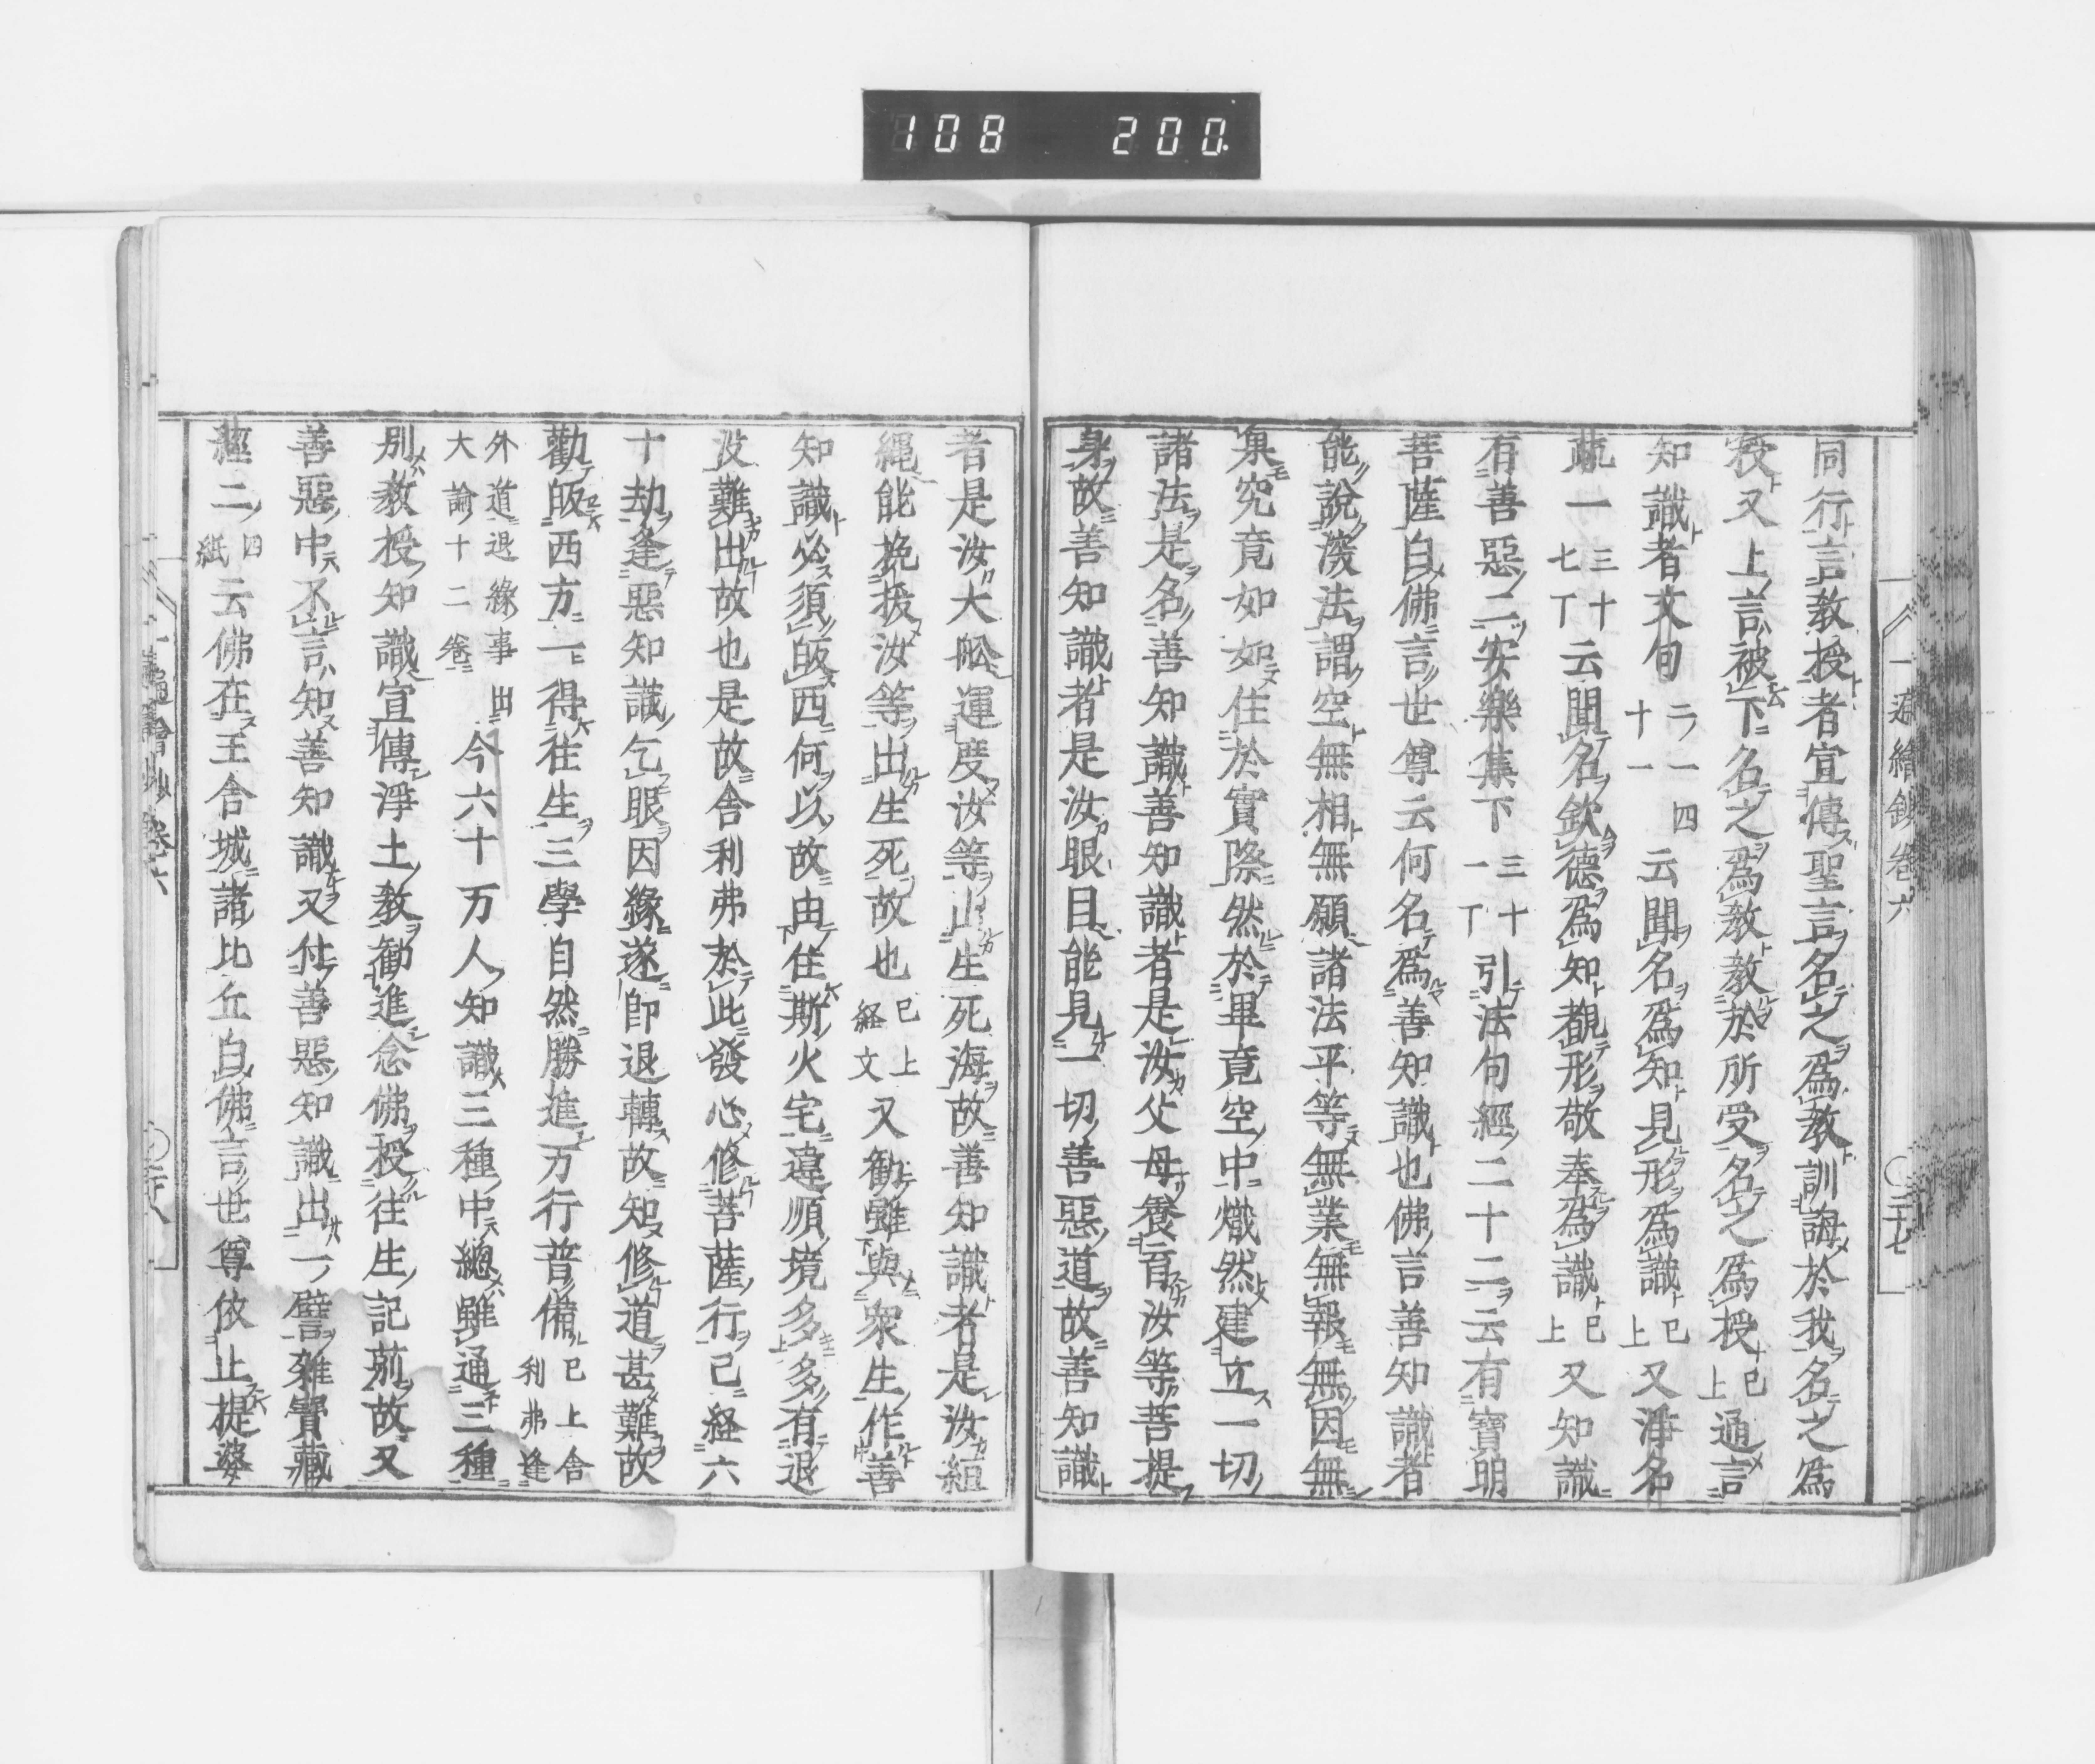 108 200.
一遍繪鈔卷六 〇二十七
同行言教授者宣傳聖言名之爲教訓誨於我名之爲
授又上言被下名之爲教教於所受名之爲授已上通言
知識者文句二ノ一十一四云聞名爲知見形爲識已上又淨名
疏一三十七丁云聞名欽德爲知覩形敬奉爲識已上又知識
有善惡二安樂集下三十一丁引法句經二十二云有寶明
菩薩白佛言世尊云何名爲善知識也佛言善知識者
能說深法謂空無相無願諸法平等無業無報無因無
果究竟如如住於實際然於畢竟空中熾然建立一切
諸法是名善知識善知識者是汝父母養育汝等菩提
身故善知識者是汝眼目能見一切善惡道故善知識
者是汝大舩運度汝等出生死海故善知識者是汝絙
繩能挽拔汝等出生死故也已上経文又勸雖與衆生作善
知識必須皈西何以故由住斯火宅違順境多多有退
没難出故也是故舍利弗於此發心修菩薩行已経六
十劫逢惡知識乞眼因緣遂卽退轉故知修道甚難故
勸皈西方一得往生三學自然勝進万行普備已上舍利弗逢
外道退緣事出大論十二卷今六十万人知識三種中總雖通三種
別教授知識宣傳淨土教勸進念佛授往生記莂故又
善惡中不言知善知識又付善惡知識出一譬雜寶藏
經二四紙云佛在王舍城諸比丘白佛言世尊依止提婆
卷六 〇二十八